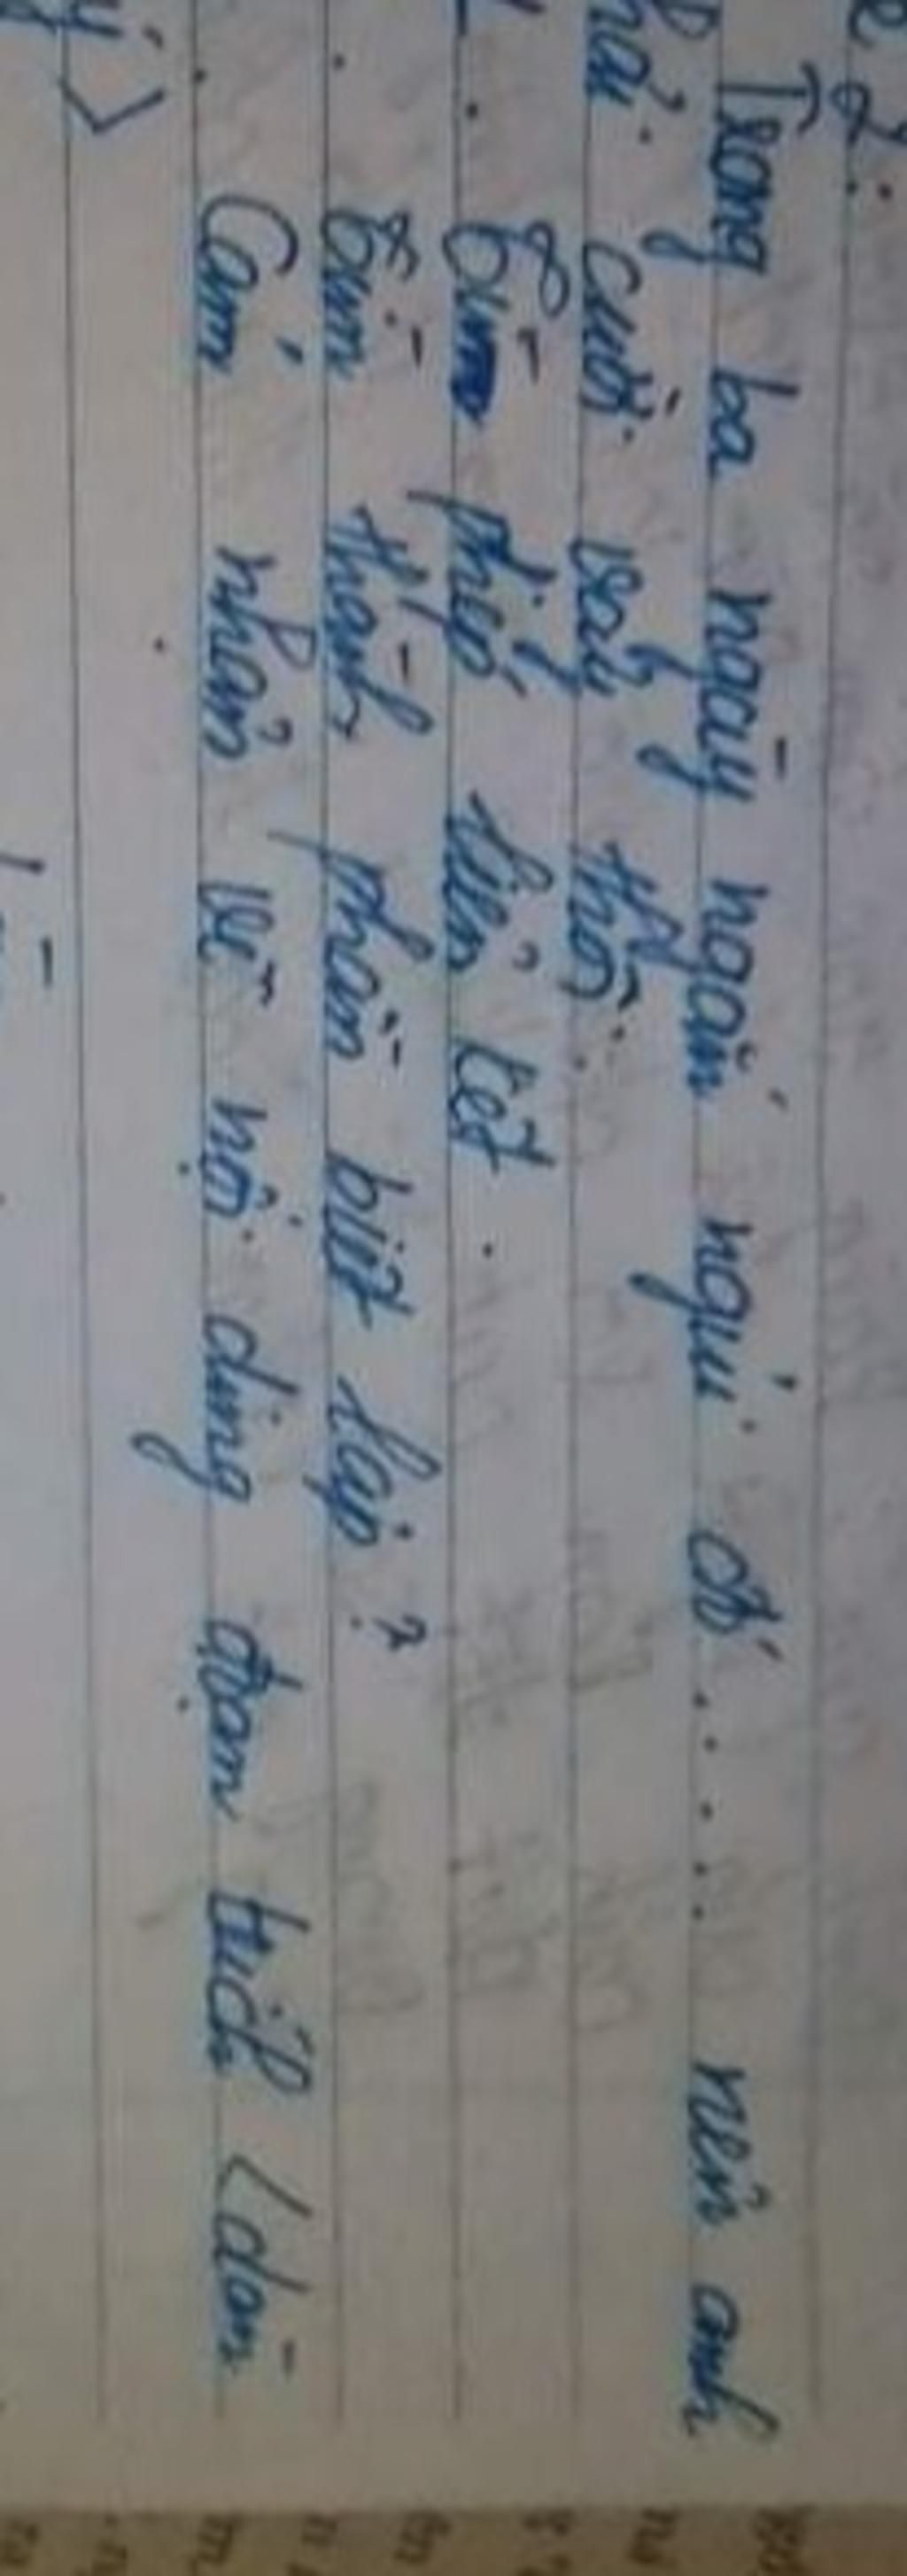 2:
Trong ba ngày ngắn ngủi đó ..... nên anh
phải cười vậy thôi.
. Tìm phép liên kết.
. Tìm thành phần biệt lập?
. Cảm nhận về nội dung đoạn trích (dàn
ý>